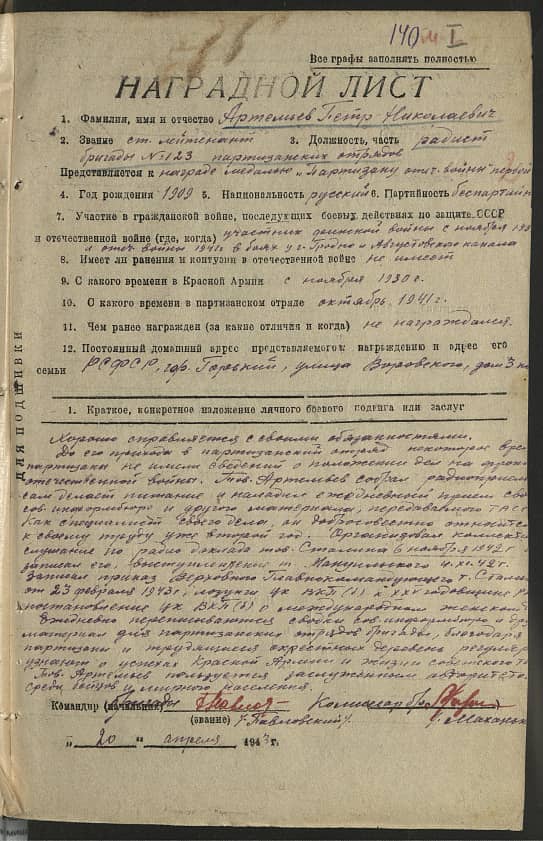 140 I
Все графы заполнять полностью
НАГРАДНОЙ ЛИСТ
1. Фамилия, имя и отчество Артемьев Петр Николаевич
2. Звание ст. лейтенант 3. Должность, часть радист
бригады №123 партизанских отрядов
Представляется к награде медалью „Партизану отеч. войны" первой
4. Год рождения 1909 5. Национальность русский 6. Партийность беспартийн
7. Участие в гражданской войне, последующих боевых действиях по защите СССР
и отечественной войне (где, когда) участник финской войны с ноября 193
и отеч. войны 1941г в боях у г. Гродно и Августовского канала
8. Имеет ли ранения и контузии в отечественной войне не имеет
9. С какого времени в Красной Армии с ноября 1930 г.
10. С какого времени в партизанском отряде октябрь 1941 г.
11. Чем ранее награжден (за какие отличия и когда) не награждался.
12. Постоянный домашний адрес представляемого к награждению и адрес его
семьи РСФСР, гор. Горький, улица Воровского, дом 3
ДЛЯ ПОДШИВКИ
1. Краткое, конкретное изложение личного боевого подвига или заслуг
Хорошо справляется с своими обязанностями.
До его прихода в партизанский отряд некоторое врем
партизаны не имели сведений о положении дел на фронт
отечественной войны. Тов. Артемьев собрал радиоприем
сам делает питание и наладил ежедневный прием сво
сов. информбюро и другого материала, передаваемого ТАСС
Как специалист своего дела, он добросовестно относится
к своему труду уже второй год. Организовал
слушание по радио доклада тов. Сталина 6 ноября 1942 г
записал его, выступление т. Мануильского
Записал приказ Верховного Главнокомандующего т. Стали
от 23 февраля 1943 г, лозунги ЦК ВКП(б) к XXV годовщине
постановление ЦК ВКП(б) о международном женском
Ежедневно переписываются сводки сов. информбюро и др
материал для партизанских отрядов бригады, благодаря
партизаны и трудящиеся окрестных деревень регуляр
узнают о успехах Красной Армии и жизни советского
Тов. Артемьев пользуется заслуженным авторитето
среди бойцов и мирного населения.
Командир (начальник) бригады Комиссар бр.
(звание) /Павловский/.
„20" апреля 1943 г.